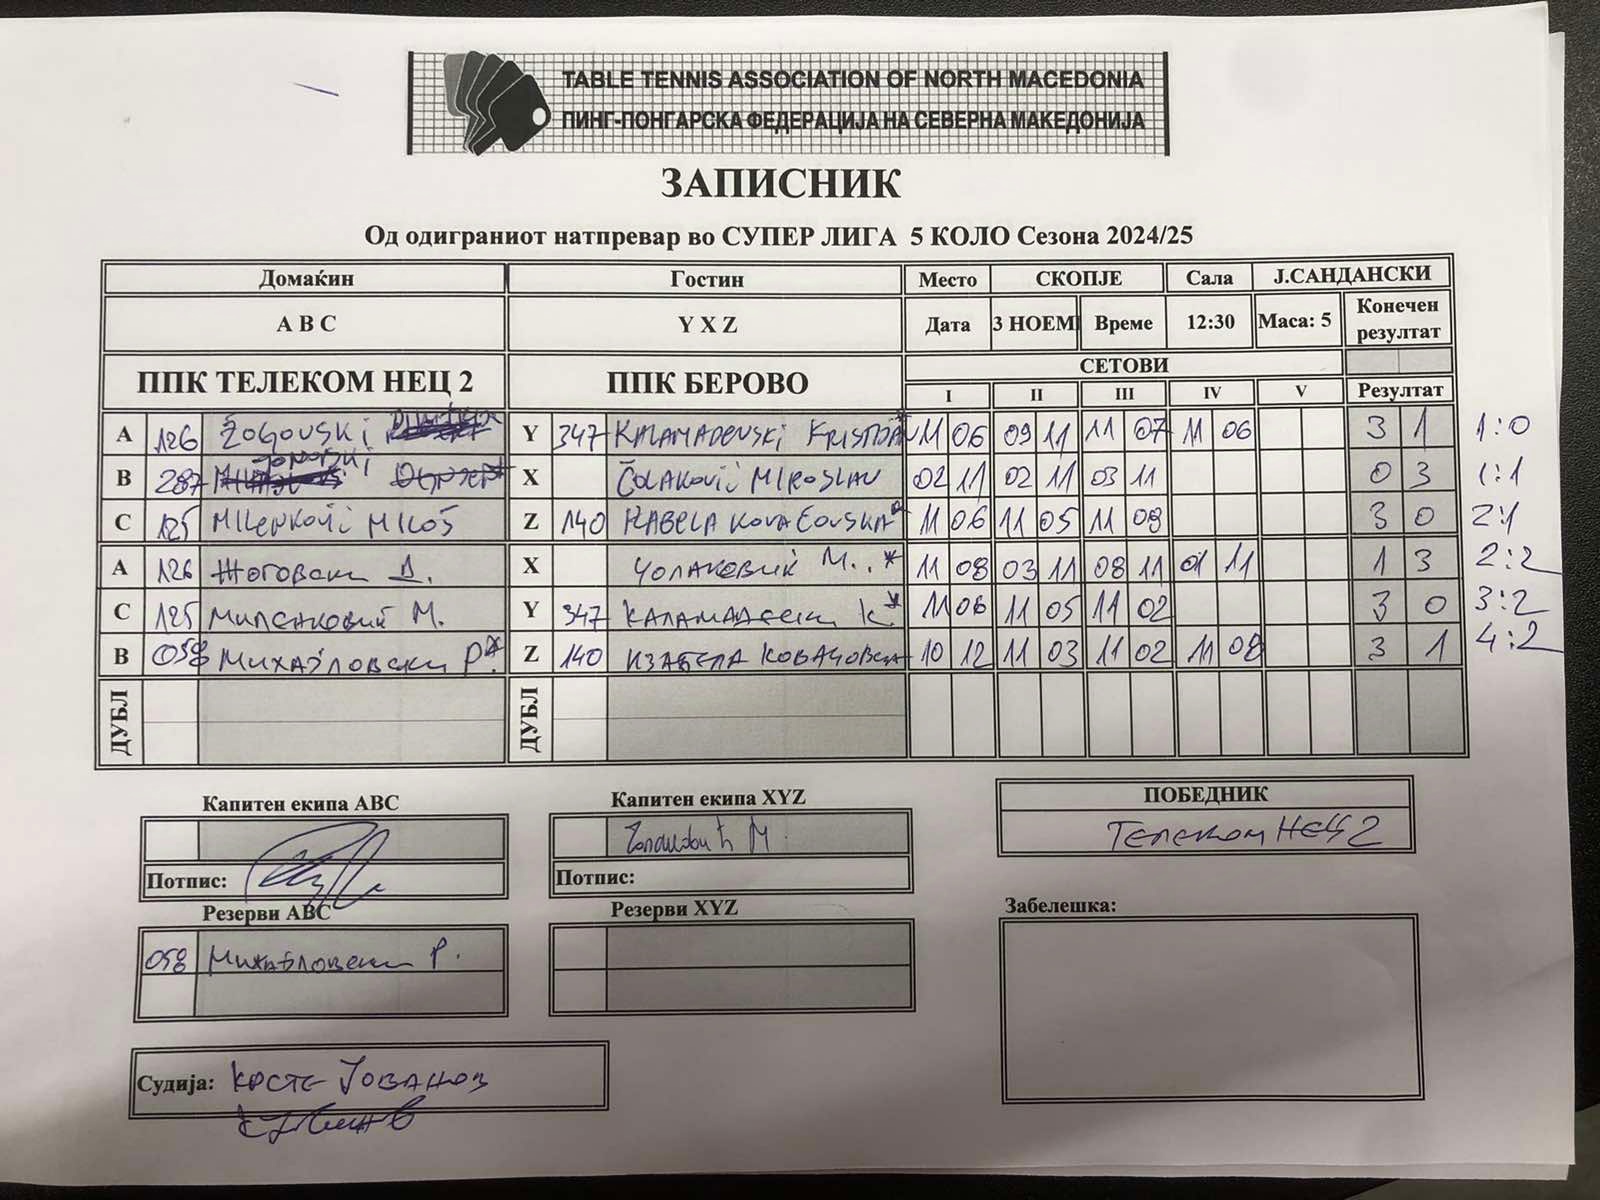 TABLE TENNIS ASSOCIATION OF NORTH MACEDONIA
ПИНГ-ПОНГАРСКА ФЕДЕРАЦИЈА НА СЕВЕРНА МАКЕДОНИЈА
ЗАПИСНИК
Од одиграниот натпревар во СУПЕР ЛИГА 5 КОЛО Сезона 2024/25
Домаќин Гостин Место СКОПЈЕ Сала Ј.САНДАНСКИ
A B C Y X Z Дата 3 НОЕМ Време 12:30 Маса: 5 Конечен резултат
ППК ТЕЛЕКОМ НЕЦ 2 ППК БЕРОВО СЕТОВИ
I II III IV V Резултат
A 126 ŽOGOVSKI Y 347 KALAMADEVSKI KRISTIJAN 11 06 09 11 11 07 11 06 3 1 1:0
B 287 X ČOLAKOVIĆ MIROSLAV 02 11 02 11 03 11 0 3 1:1
C 125 MILENKOVIĆ MILOŠ Z 140 IZABELA KOVAČOVSKA 11 06 11 05 11 09 3 0 2:1
A 126 ЖОГОВСКИ Д. X ЧОЛАКОВИЌ М. * 11 08 03 11 08 11 01 11 1 3 2:2
C 125 МИЛЕНКОВИЌ М. Y 347 КАЛАМАДЕВСКИ К.* 11 06 11 05 11 02 3 0 3:2
B 058 МИХАЈЛОВСКИ Р.* Z 140 ИЗАБЕЛА КОВАЧОВСКА 10 12 11 03 11 02 11 08 3 1 4:2
ДУБЛ ДУБЛ
Капитен екипа ABC Капитен екипа XYZ ПОБЕДНИК
М. ТЕЛЕКОМ НЕЦ 2
Потпис: Потпис:
Резерви ABC Резерви XYZ Забелешка:
058 МИХАЈЛОВСКИ Р.
Судија: КРСТЕ ЈОВАНОВ